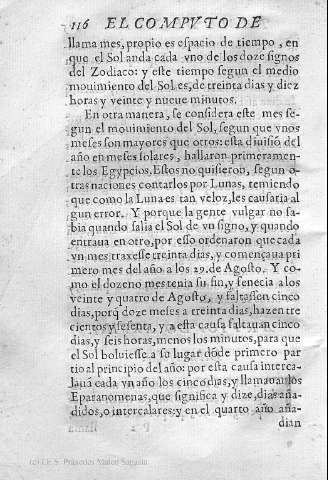 116 EL COMPVTO DE
llama mes, propio es espacio de tiempo, en
que el Sol anda cada vno de los doze signos
del Zodiaco: y este tiempo segun el medio
mouimiento del Sol. es, de treinta dias y diez
horas y veinte y nueue minutos.
En otra manera, se considera este mes se-
gun el mouimiento del Sol, segun que vnos
meses son mayores que otros: esta diuisiõ del
año en meses solares, hallaron primeramen-
te los Egypcios. Estos no quisieron, segun o-
tras naciones contarlos por Lunas, temiendo
que como la Luna es tan veloz, les causaria al
gun error. Y porque la gente vulgar no sa-
bia quando salia el Sol de vn signo, y quando
entraua en otro, por esso ordenaron que cada
vn mes traxesse treinta dias, y començaua pri
mero mes del año a los 29. de Agosto. Y co-
mo el dozeno mes tenia su fin, y fenecia a los
veinte y quatro de Agosto, y faltassen cinco
dias, porq̃ doze meses a treinta dias, hazen tre
cientos y sesenta, y a esta causa faltauan cinco
dias, y seis horas, menos los minutos, para que
el Sol boluiesse a su lugar dõde primero par
tio al principio del año: por esta causa interca-
lauã cada vn año los cinco dias, y llamauan los
Eparanomenas, que significa y dize, dias aña-
didos, o intercalares: y en el quarto año aña-
dian
(c) Dr. S. Práxedes Mateo Sagasta